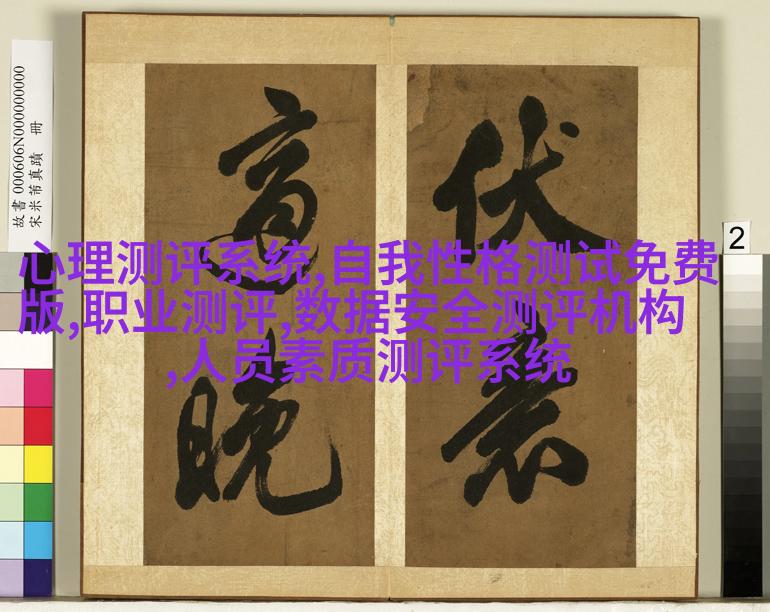 故書 000606N000000000
宋米芾真蹟 冊
心理测评系统,自我性格测试免费
版,职业测评,数据安全测评机构
,人员素质测评系统
伏
晚
2